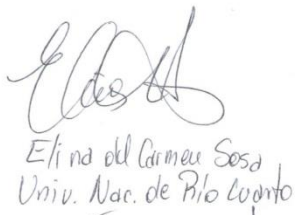 Elina del Carmen Sosa
Univ. Nac. de Río Cuarto